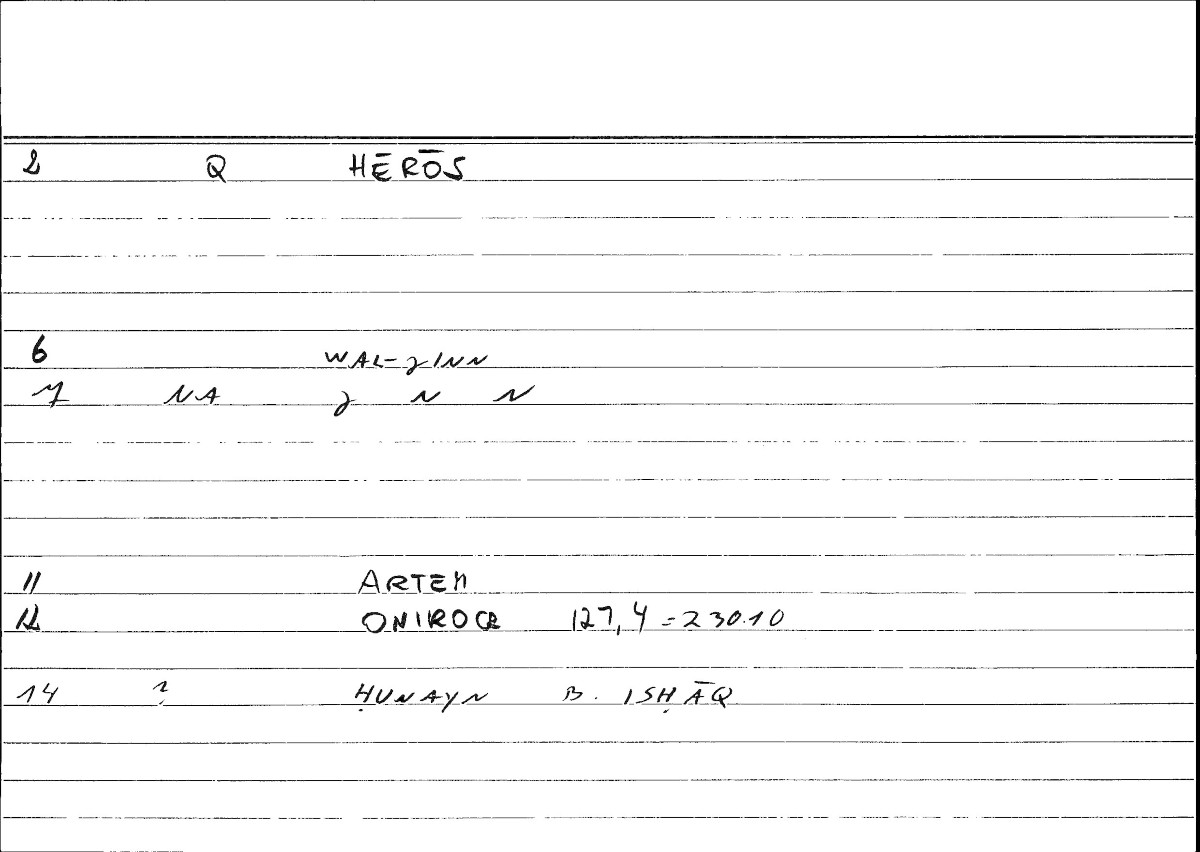 2 Q HĒRŌS
6 WAL-ȷINN
7 NA ȷ N N
11 ARTEM
12 ONIROCR 127,4 = 230.10
14 ? ḤUNAYN B. ISḤĀQ